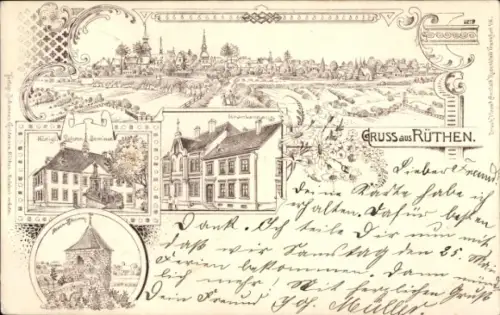 GRUSS aus RÜTHEN.
Lieber Freund
Deine Karte habe ich
erhalten. Dafür besten
Dank. Ich teile Dir nun mit
daß wir Samstag den 25. März
Ferien bekommen. Dann
lich mehr! Mit herzlichem Gruß
Dein Freund Joh. Müller.